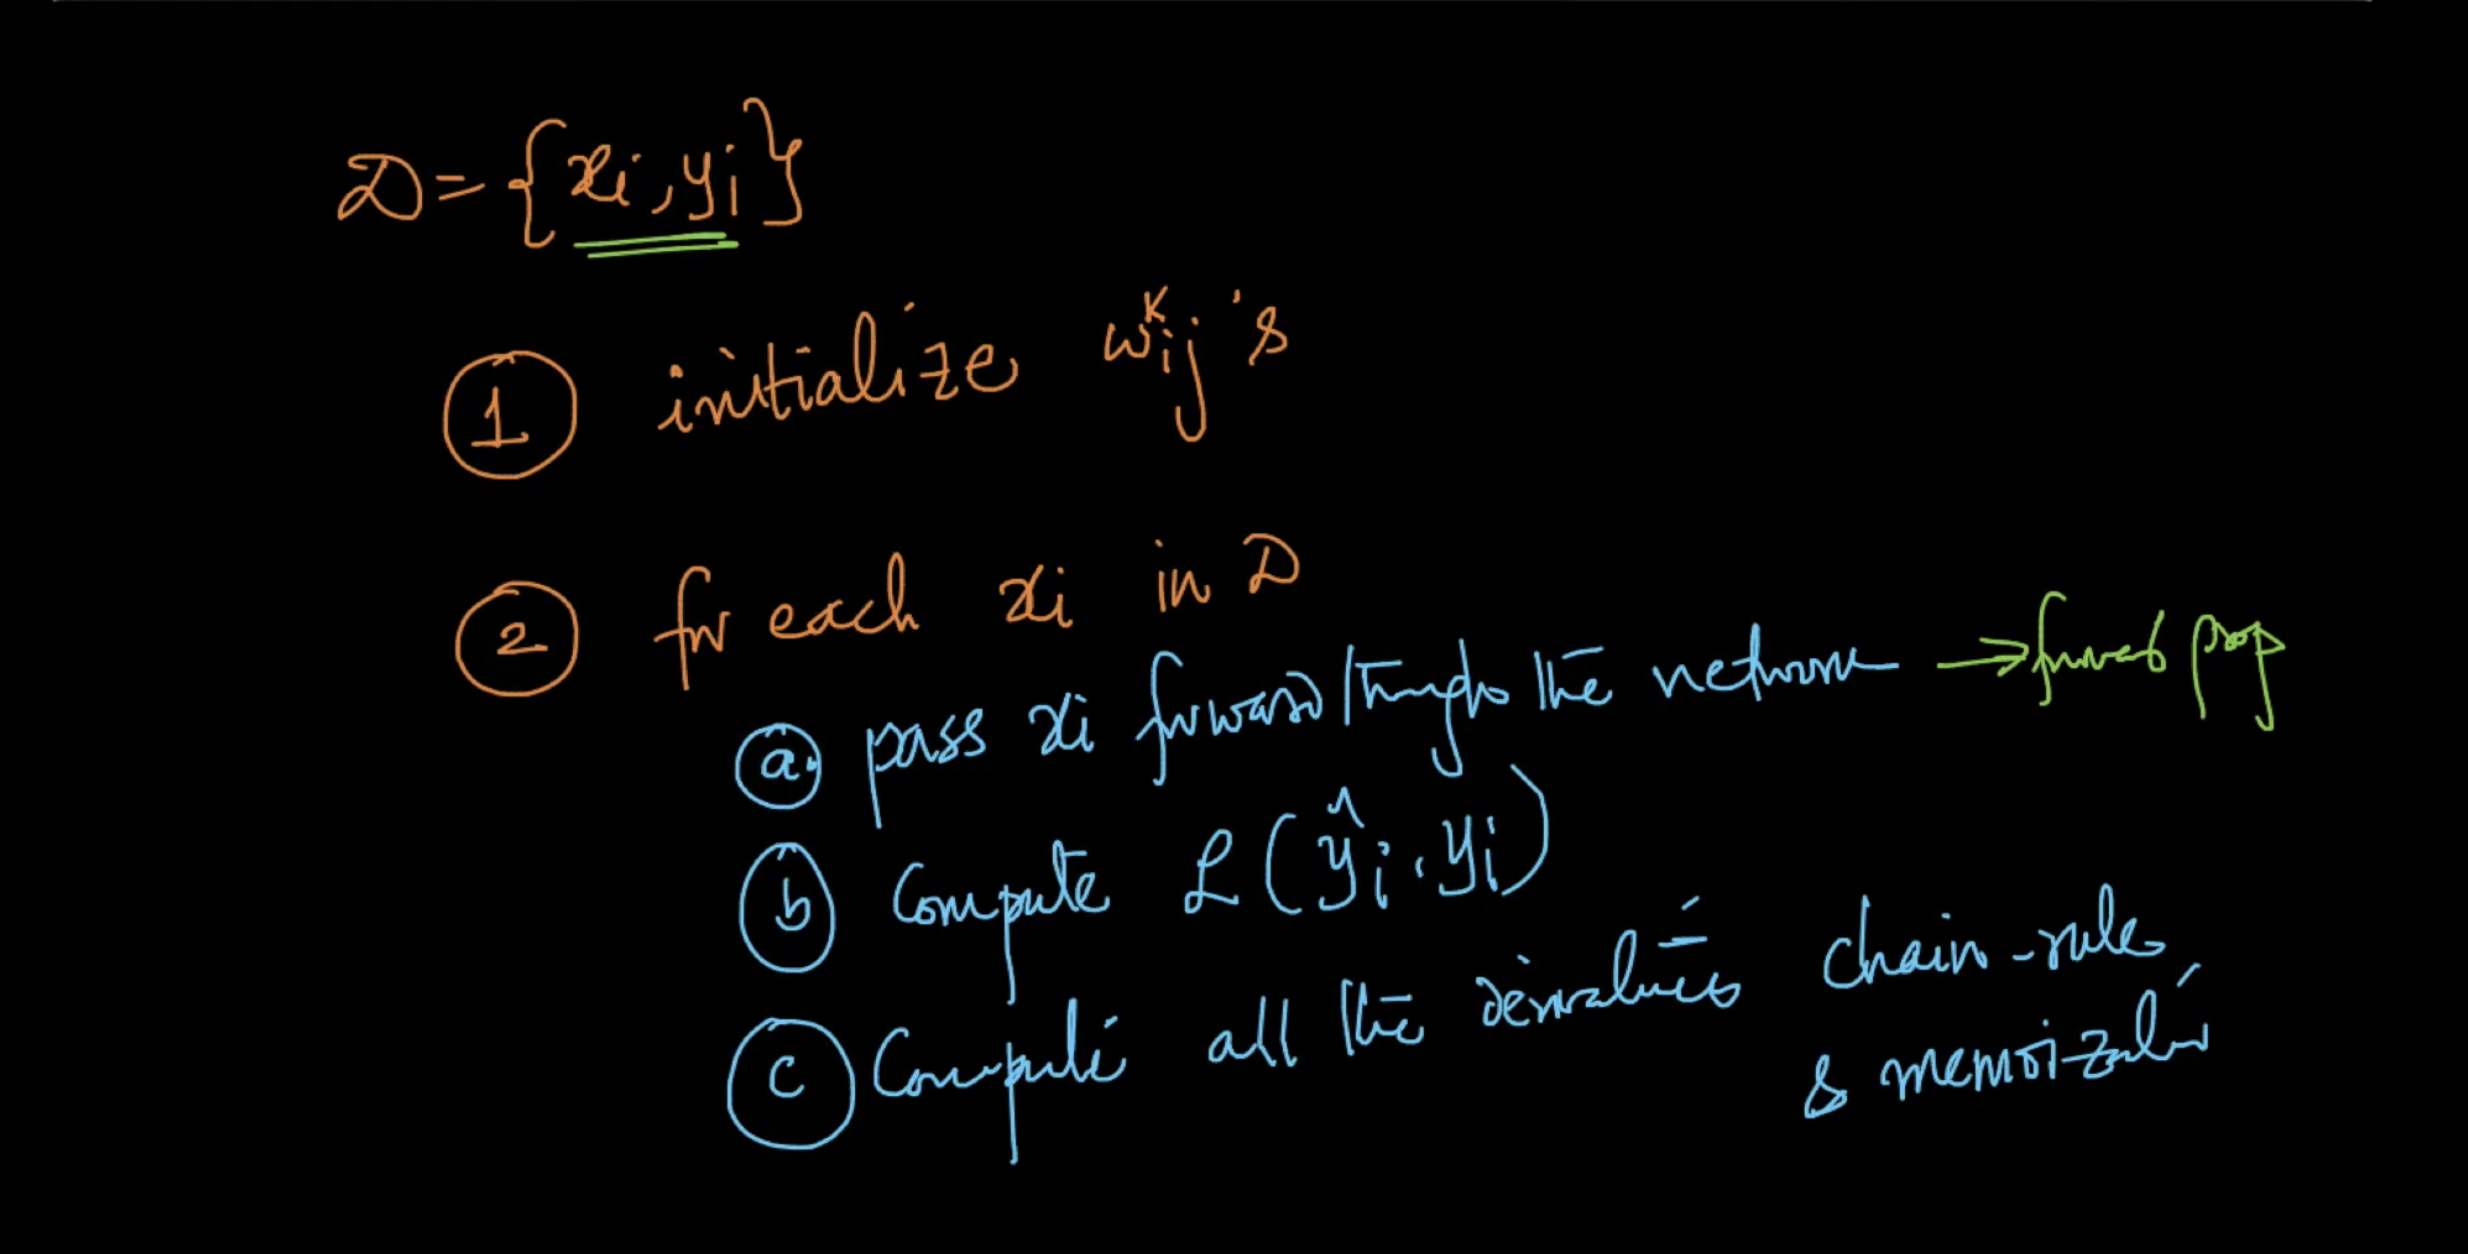 D = {xi, yi}
1 initialize w^k_ij's
2 for each xi in D
a. pass xi forward through the network → forward prop
b Compute L(ŷi, yi)
c Compute all the derivatives chain-rule
& memoization